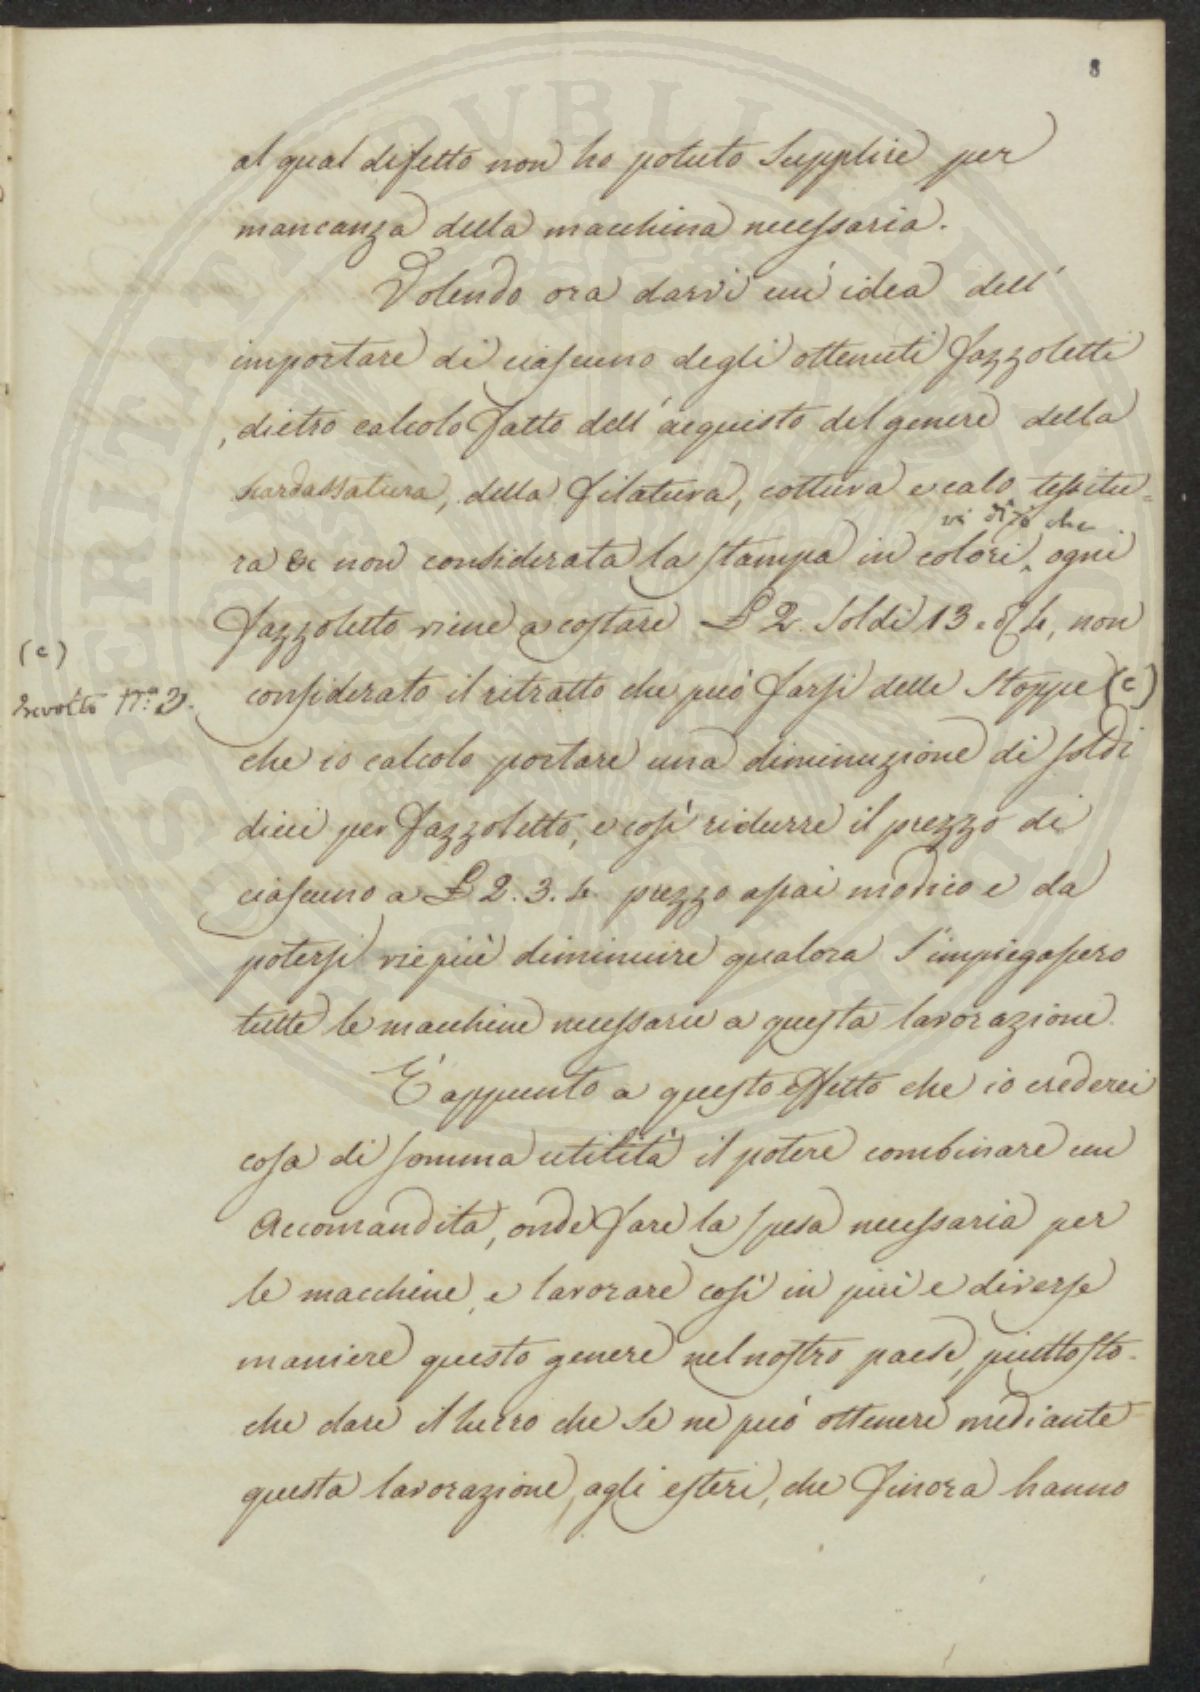 8
al qual difetto non ho potuto supplire per
mancanza della macchina necessaria.
Volendo ora darvi un'idea dell'
importare di ciascuno degli ottenuti Fazzoletti
, dietro calcolo fatto dell'acquisto del genere della
Scardassatura, della filatura, cottura e calo tessitu=
vi dirò che
ra &c non considerata la stampa in colori, ogni
Fazzoletto viene a costare £ 2. Soldi 13 e 4, non
considerato il ritratto che può farsi delle Stoppe (c)
(c)
Involto N.º 3.
che io calcolo portare una diminuzione di soldi
dieci per Fazzoletto, e così ridurre il prezzo di
ciascuno a £ 2. 3. 4. prezzo assai modico e da
potersi viepiù diminuire qualora s'impiegassero
tutte le macchine necessarie a questa lavorazione.
E' appunto a questo effetto che io crederei
cosa di somma utilità il potere combinare un
Accomandita, onde fare la spesa necessaria per
le macchine, e lavorare così in più e diverse
maniere questo genere nel nostro paese, piuttosto-
che dare il lucro che se ne può ottenere mediante
questa lavorazione, agli esteri, che finora hanno
PVBLICAE